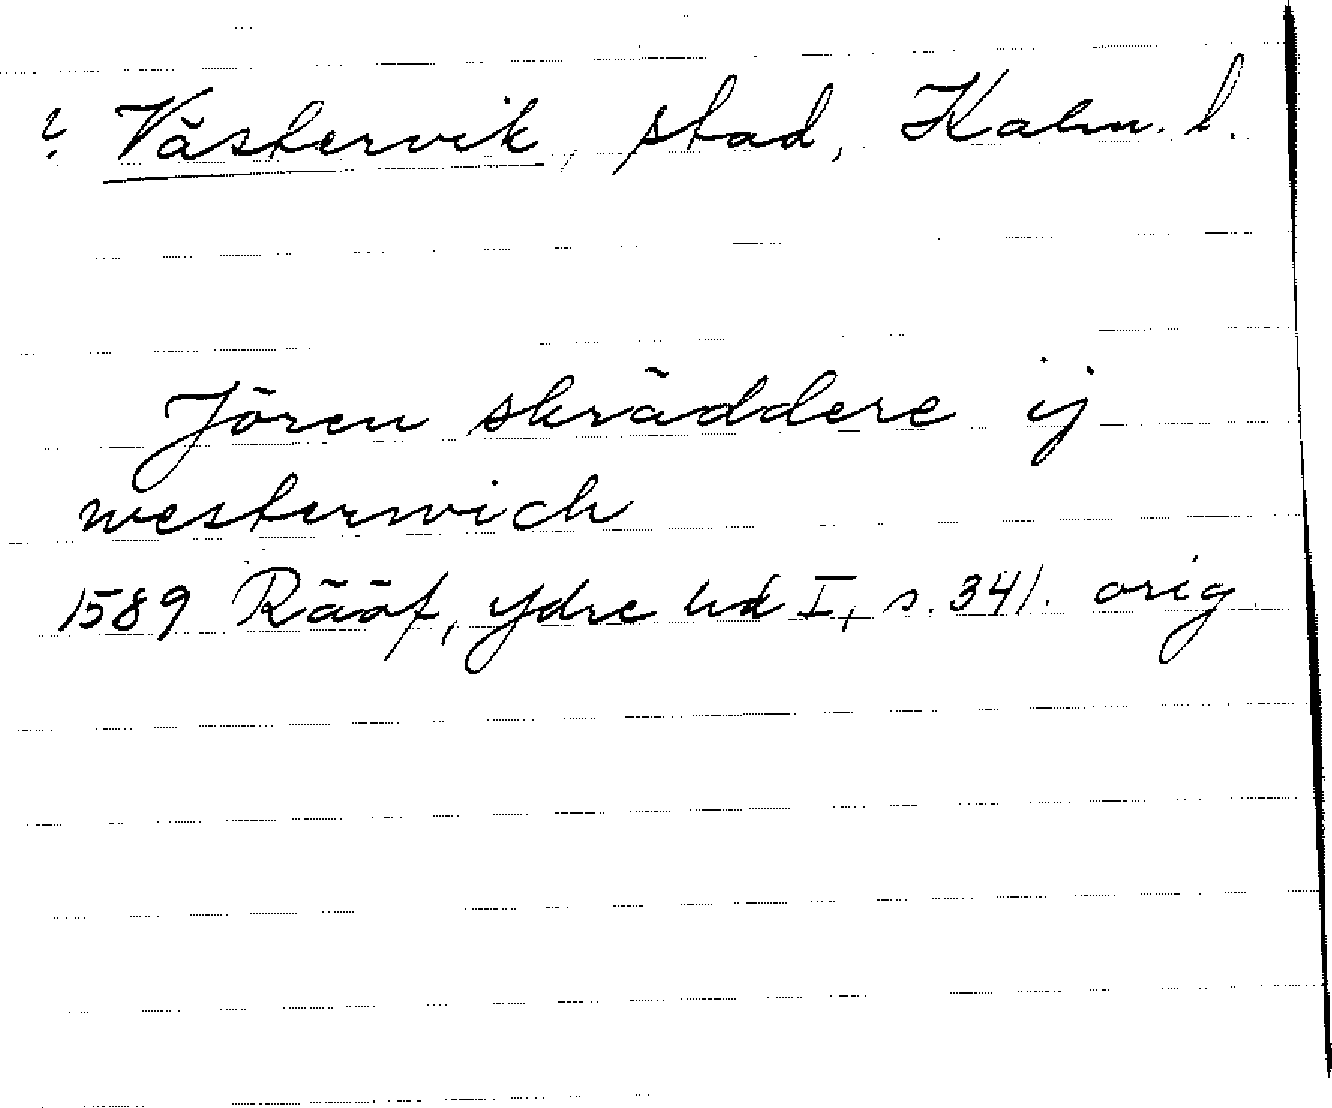 ? Västervik, stad, Kalm. l.
Jören skräddere ij
westerwich
1589 Rääf, Ydre hd I, s. 341. orig